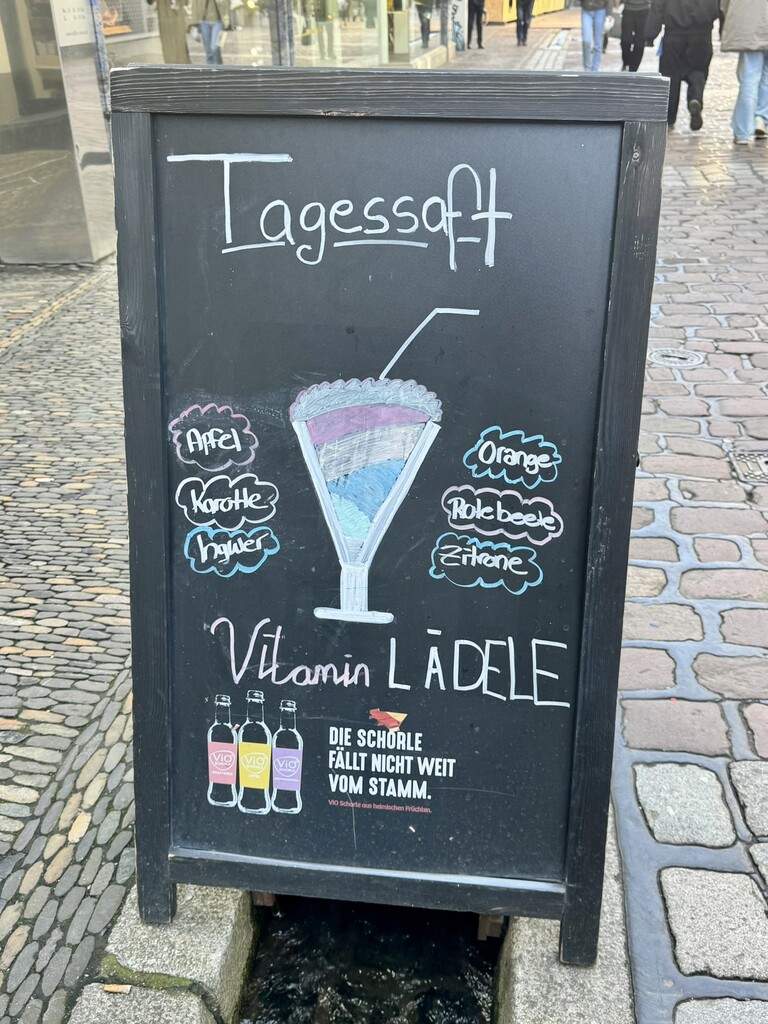 Tagessaft
Apfel
Karotte
Ingwer
Orange
Rote beete
Zitrone
Vitamin LĀDELE
ViO
ViO
ViO
DIE SCHORLE
FÄLLT NICHT WEIT
VOM STAMM.
ViO Schorle aus heimischen Früchten.